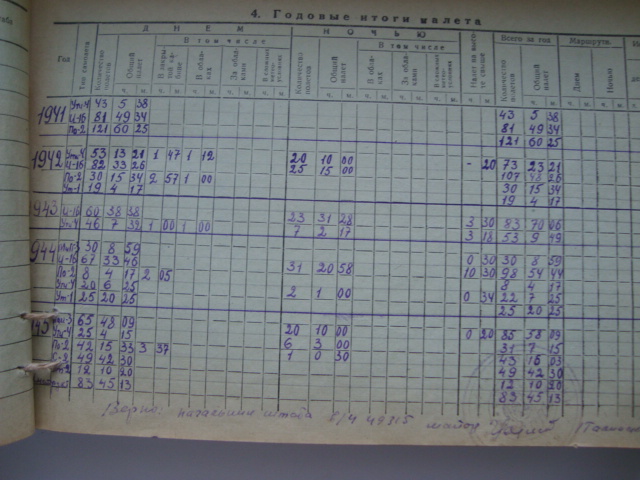 4. Годовые итоги налета
Д Н Е М Н О Ч Ь Ю Всего за год Маршрутн.
Год Тип самолета Количество полетов Общий налет В том числе Количество полетов Общий налет В том числе Количество полетов Общий налет Днем Ночью
В обла-ках За обла-ками В обла-ках За обла-ками
ч. м. ч. м. ч. м. ч. м. ч. м. ч. м. ч. м.
1941 Ути-4 43 5 38 43 5 38
И-16 81 49 34 81 49 34
По-2 121 60 25 121 60 25
1942 Ути-4 53 13 21 1 47 1 12 20 10 00 20 73 23 21
И-16 82 33 26 25 15 00 107 48 26
По-2 30 15 34 2 57 1 00 30 15 34
Ут-1 19 4 17 19 4 17
1943 И-16 60 38 38 23 31 28 3 30 83 70 06
Ути-4 46 7 32 1 00 1 00 7 2 17 3 18 53 9 49
944 30 8 59 0 30 30 8 59
И-16 67 33 46 31 20 58 10 30 98 54 44
По-2 8 4 17 2 05 8 4 17
Ути-4 20 6 25 2 1 00 0 34 22 7 25
Ут-1 25 20 25 25 20 25
65 48 09 20 10 00 0 20 85 58 09
Ути-4 25 4 15 6 3 00 31 7 15
По-2 42 15 33 3 37 1 0 30 43 16 03
49 42 30 49 42 30
12 10 20 12 10 20
83 45 13 83 45 13
Верно: начальник штаба в/ч 49315 майор